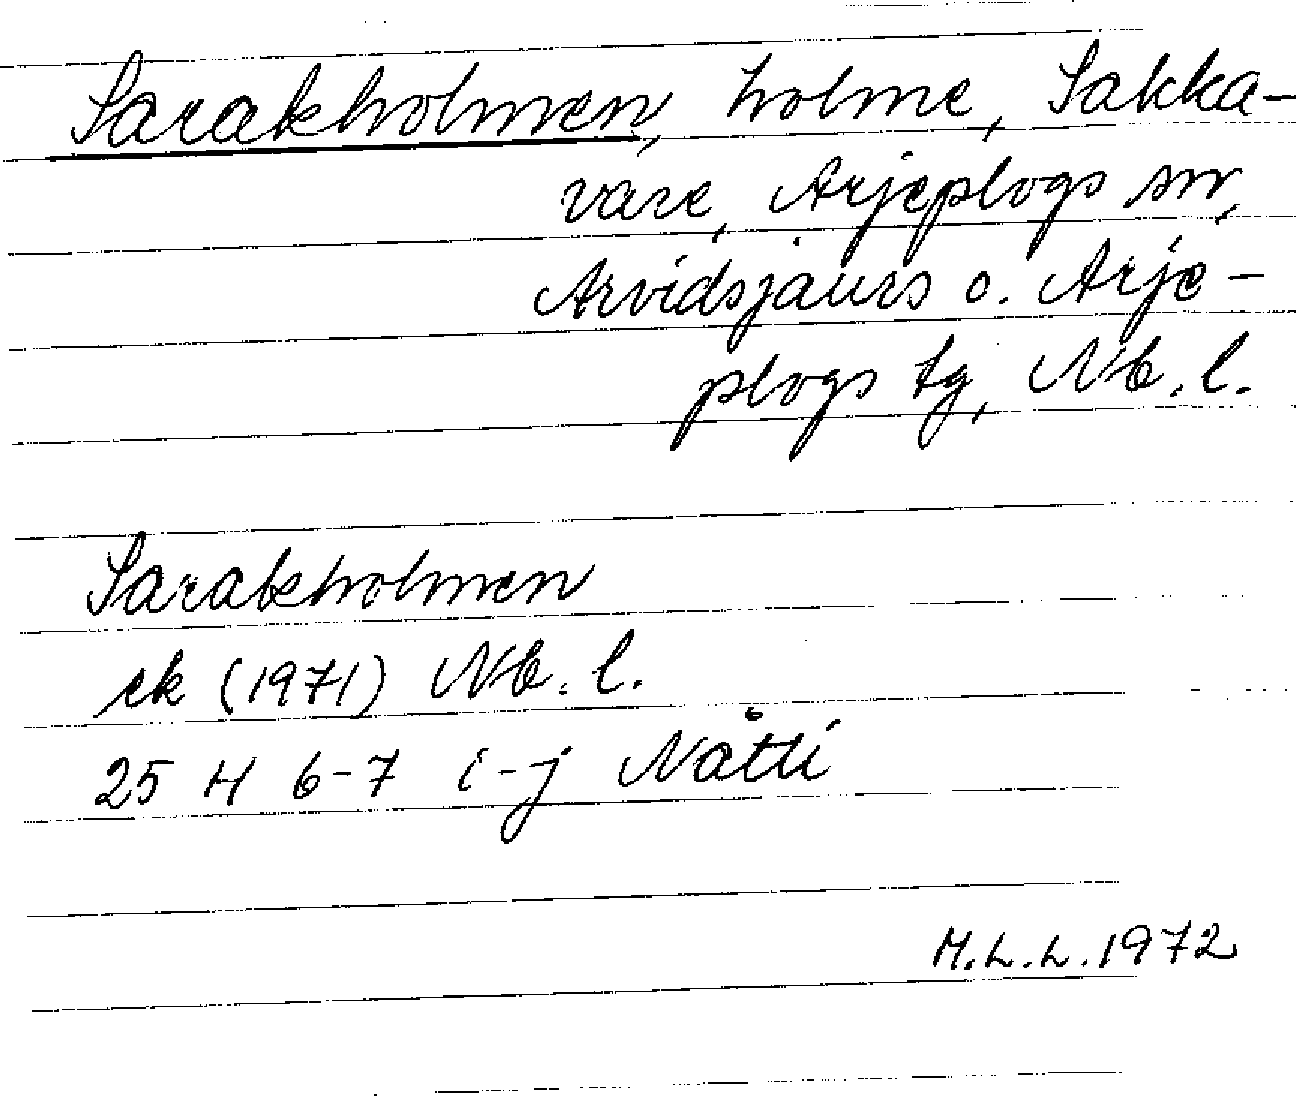 Sarakholmen, holme, Sakka-
vare, Arjeplogs sn,
Arvidsjaurs o. Arje-
plogs tg, Nb. l.
Sarakholmen
ek (1971) Nb. l.
25 H 6-7 i-j Nåtti
M.L.L. 1972